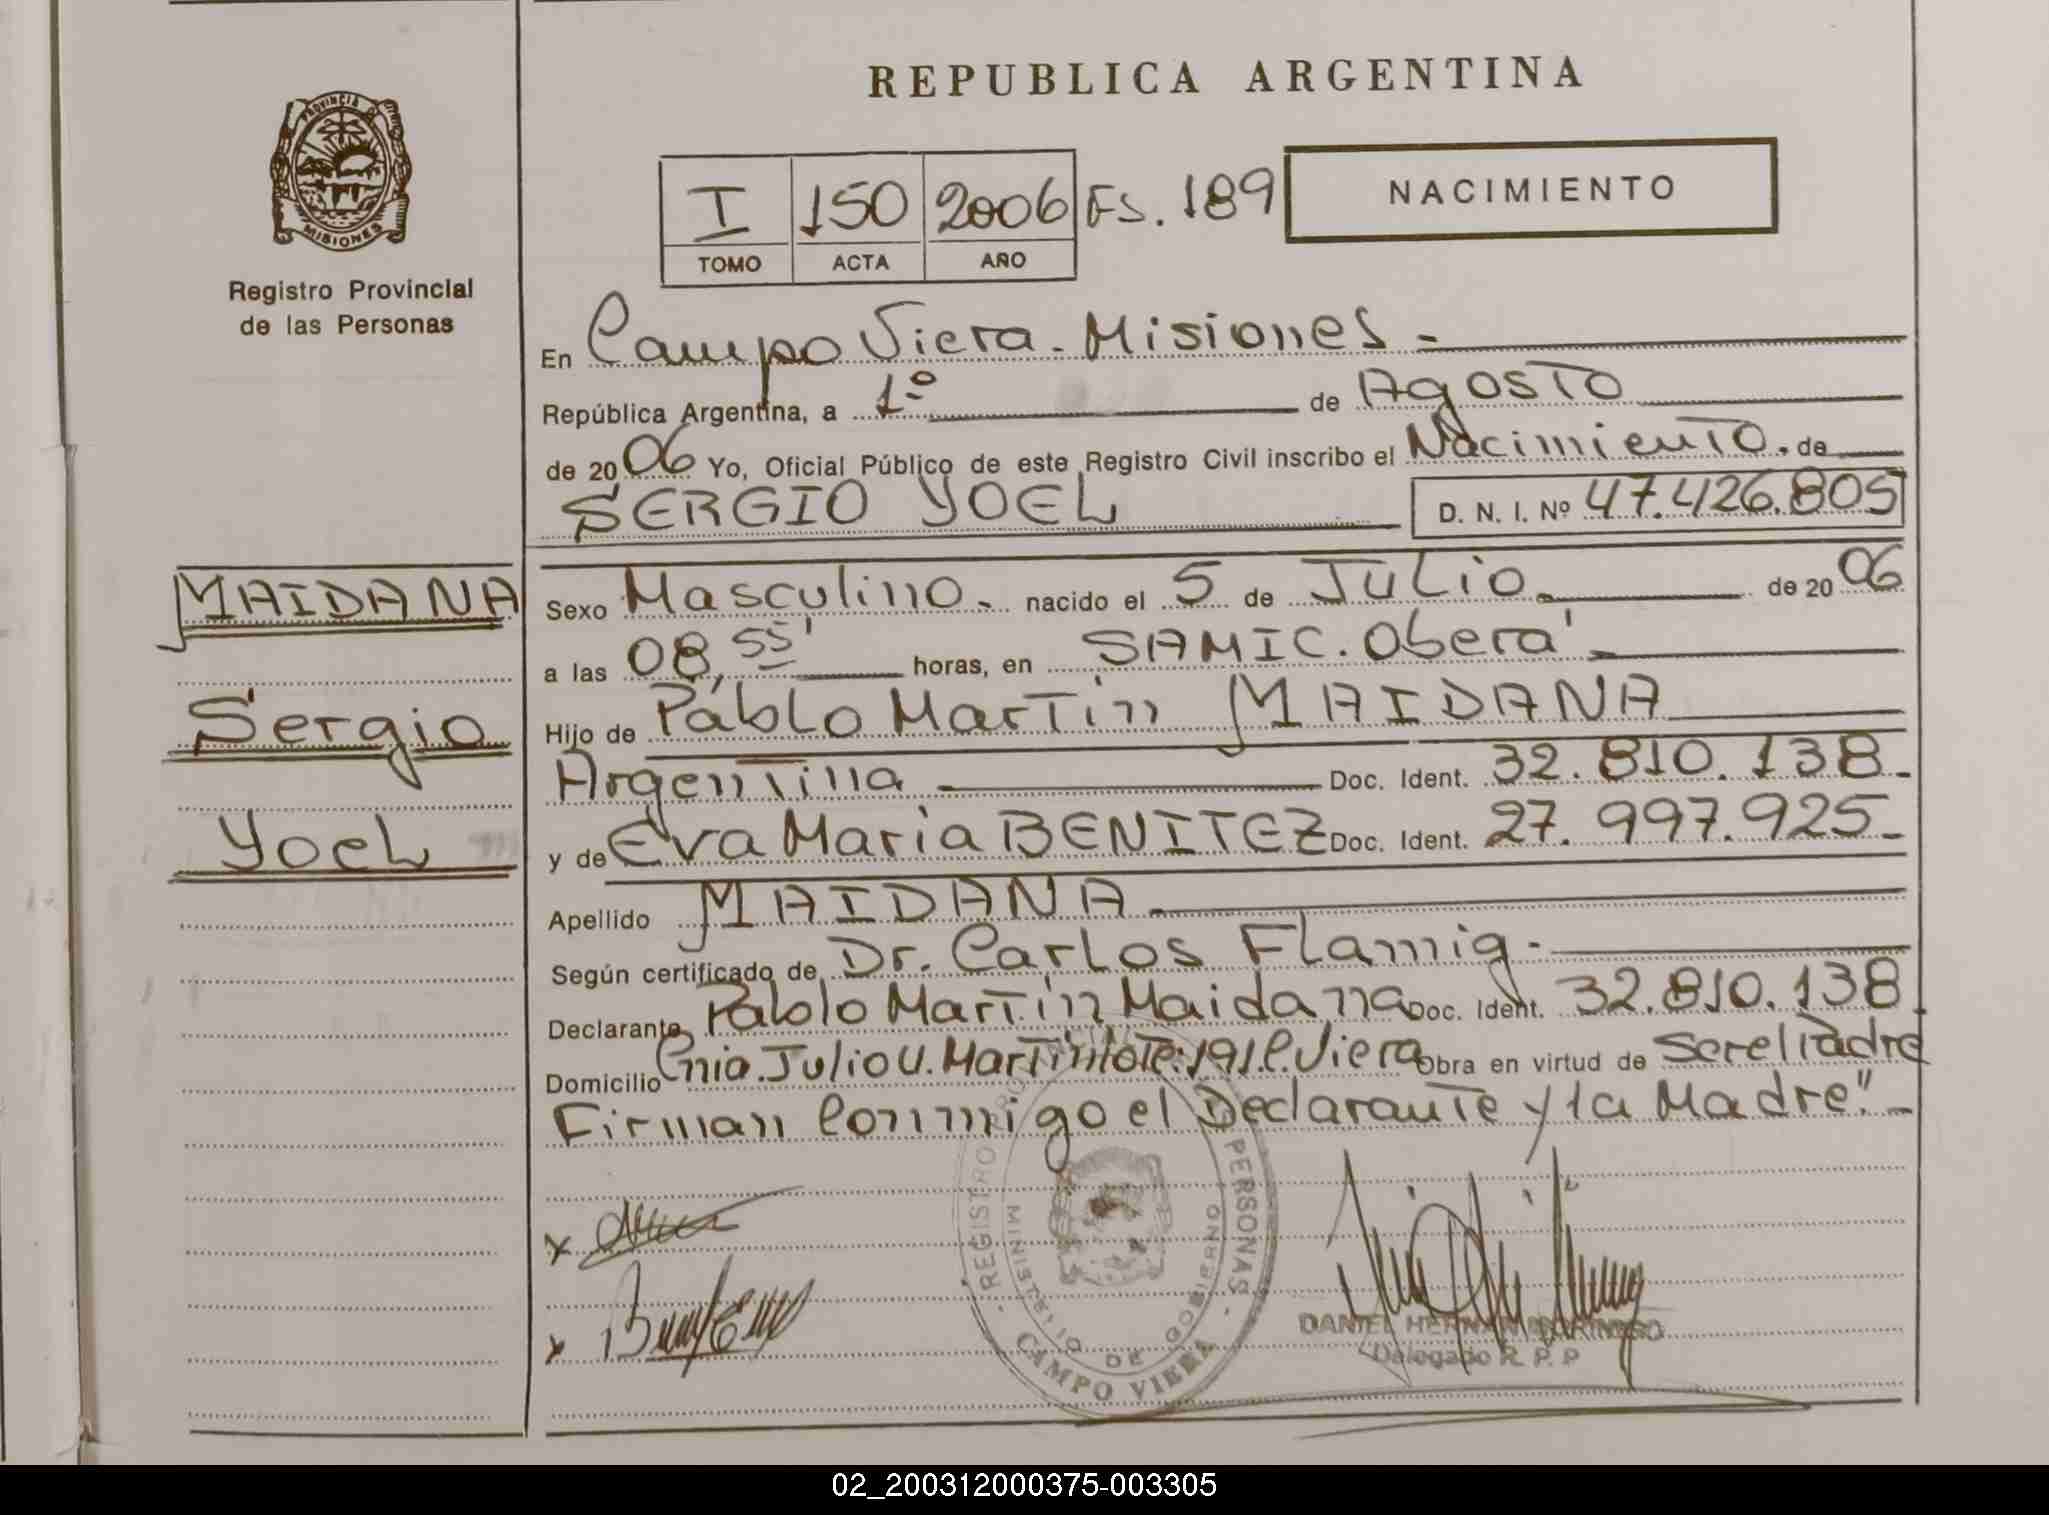 REPUBLICA ARGENTINA
PROVINCIA DE
MISIONES
Registro Provincial
de las Personas
I 150 2006 FS. 189
TOMO ACTA AÑO
NACIMIENTO
En Campo Viera - Misiones -
República Argentina, a 1º de Agosto
de 2006 Yo, Oficial Público de este Registro Civil inscribo el Nacimiento. de
SERGIO YOEL D. N. I. Nº 47.426.805
MAIDANA
Sergio
Yoel
Sexo Masculino - nacido el 5 de Julio de 2006
a las 08,55' horas, en SAMIC. Oberá -
Hijo de Pablo Martín MAIDANA
Argentina Doc. Ident. 32.810.138-
y de Eva Maria BENITEZ Doc. Ident. 27.997.925-
Apellido MAIDANA
Según certificado de Dr. Carlos Flamig.
Declarante Pablo Martín Maidana Doc. Ident. 32.810.138
Domicilio Cnia. Julio U. Martin lote: 191. C. Viera Obra en virtud de Ser el Padre
Firman Conmigo el Declarante y la Madre" -
x
x
REGISTRO PERSONAS
MINISTERIO DE GOBIERNO
CAMPO VIERA
DANIEL HERNAN
Delegado R. P. P
02_200312000375-003305